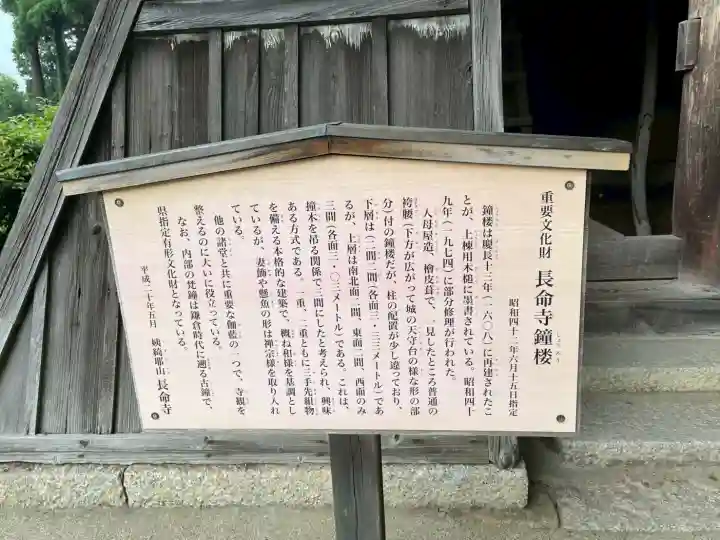 重要文化財 長命寺鐘楼
昭和四十二年六月十五日指定
鐘楼は慶長十三年(一六〇八)に再建されたこ
とが、上棟用木槌に墨書されている。昭和四十
九年(一九七四)に部分修理が行われた。
入母屋造、檜皮葺で、一見したところ普通の
袴腰(下方が広がって城の天守台の様な形の部
分)付の鐘楼だが、柱の配置が少し違っており、
下層は二間二間(各面三・三三メートル)であ
るが、上層は南北面二間、東面二間、西面のみ
三間(各面三・〇三メートル)である。これは、
撞木を吊る関係で三間にしたと考えられ、興味
ある方式である。一重、二重ともに三手先組物
を備える本格的な建築で、概ね和様を基調とし
ているが、妻飾や懸魚の形は禅宗様を取り入れ
ている。
他の諸堂と共に重要な伽藍の一つで、寺観を
整えるのに大いに役立っている。
なお、内部の梵鐘は鎌倉時代に遡る古鐘で、
県指定有形文化財となっている。
平成二十年五月 姨綺耶山 長命寺